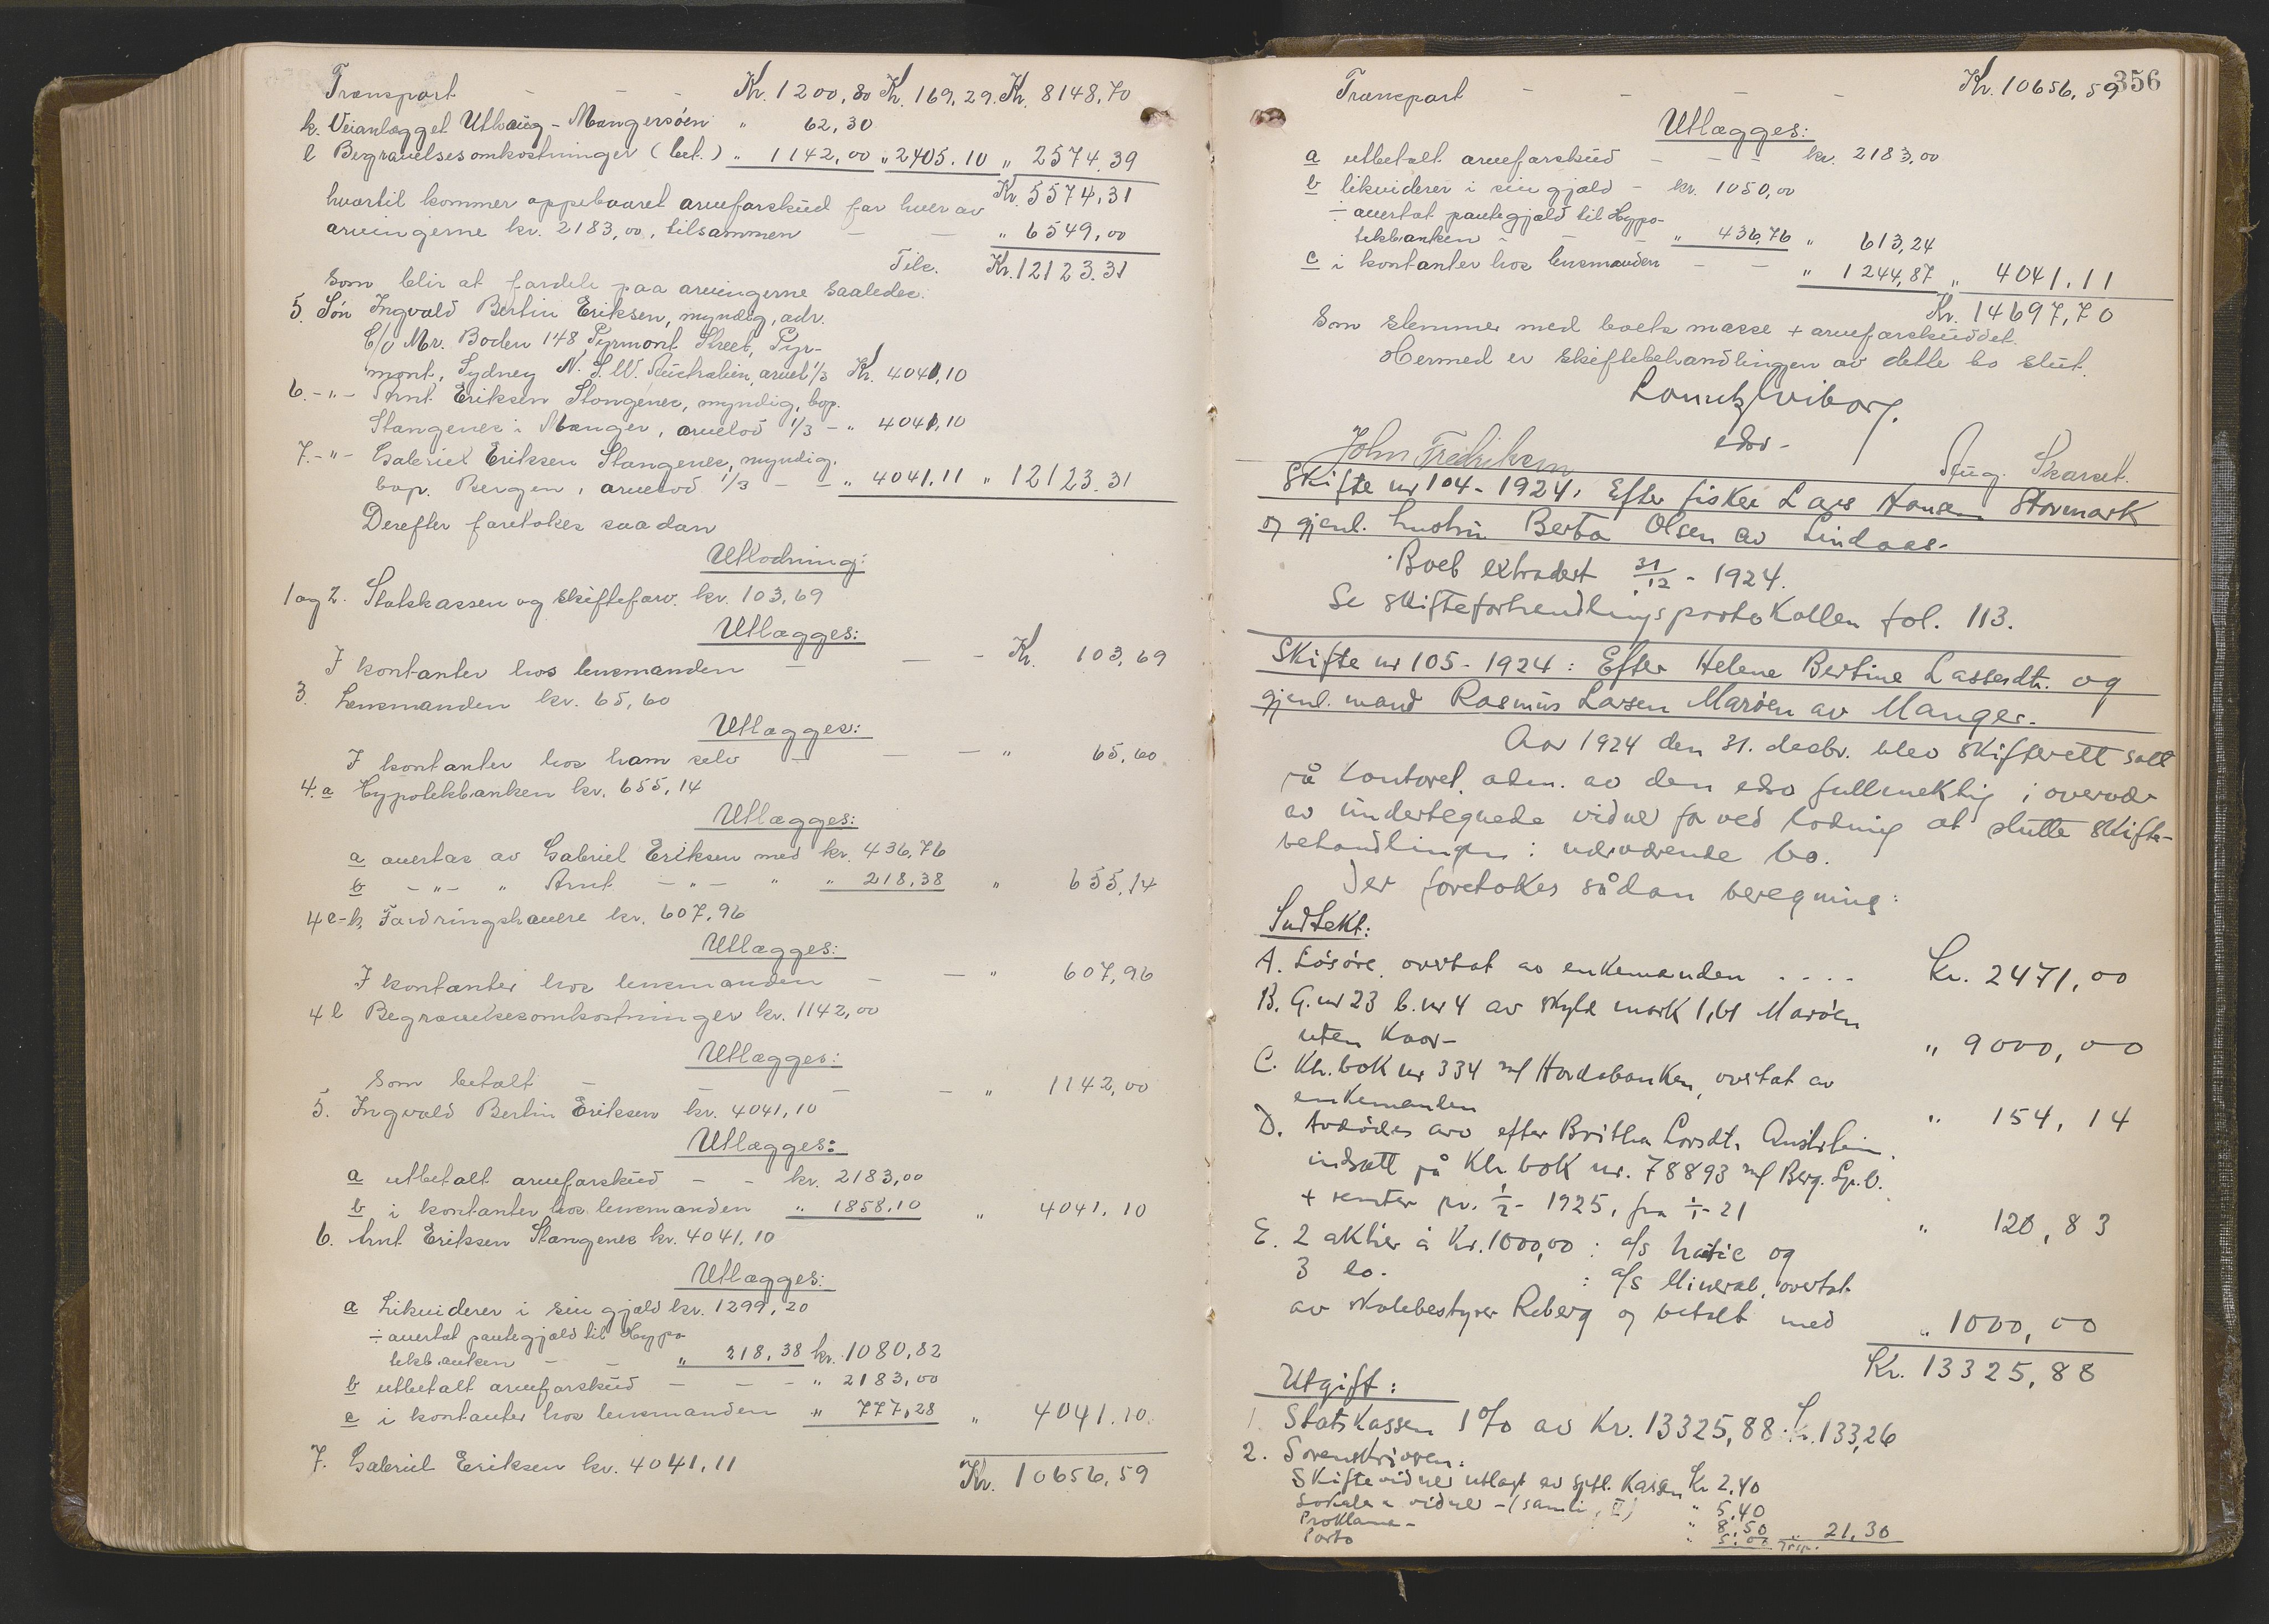 Transport - - - Kr. 1200,80 Kr. 169,29. Kr. 8148,70
k. Veianlægget Uthaug - Mangersöen " 62,30
l Begravelsesomkostninger (bet.) " 1142,00 " 2405.10 " 2574.39
Kr. 5574,31
hvortil kommer oppebaaret arveforskud for hver av
arvingerne kr. 2183,00, tilsammen - - " 6549,00
Tils. Kr. 12123.31
som blir at fordele paa arvingerne saaledes:
5. Sön Ingvald Bertin Eriksen, myndig, adr.
C/o Mr. Boden 148 Pyrmont Street, Pyr-
mont, Sydney N. S. W. Australien, arvel. 1/3 Kr. 4041,10
6. - " - Arnt Eriksen Stangenes, myndig, bop.
Stangenes i Manger, arvelod 1/3 - " 4041,10
7. - " - Gabriel Eriksen Stangenes, myndig,
bop. Bergen, arvelod 1/3 - - " 4041.11 " 12123.31
Derefter foretokes saadan
Utlodning:
1 og 2. Statskassen og skifteforv. kr. 103,69
Utlægges:
I kontanter hos lensmanden - - - Kr. 103,69
3. Lensmanden kr. 65,60
Utlægges:
I kontanter hos ham selv - - - " 65,60
4. a Hypotekbanken kr. 655,14
Utlægges:
a overtas av Gabriel Eriksen med kr. 436,76
b - " - " Arnt - " - " " 218,38 " 655,14
4 c-k, Fordringshavere kr. 607,96
Utlægges:
I kontanter hos lensmanden - - " 607,96
4 l Begravelsesomkostninger kr. 1142,00
Utlægges:
Som betalt - - - - " 1142,00
5. Ingvald Bertin Eriksen kr. 4041,10
Utlægges:
a utbetalt arveforskud - - kr. 2183,00
b i kontanter hos lensmanden " 1858,10 " 4041.10
6. Arnt Eriksen Stangenes kr. 4041,10
Utlægges:
a Likviderer i sin gjæld kr. 1299,20
÷ overtat pantegjæld til Hypo-
tekbanken - - " 218,38 kr. 1080,82
b utbetalt arveforskud - - - " 2183,00
c i kontanter hos lensmanden " 777,28 " 4041.10.
7. Gabriel Eriksen kr. 4041,11
Kr. 10656,59
356
Transport - - - - Kr. 10656,59
Utlægges:
a utbetalt arveforskud - - - kr. 2183,00
b likviderer i sin gjæld - kr. 1050,00
÷ overtat pantegjæld til Hypo-
tekbanken - - - " 436,76 " 613,24
c i kontanter hos lensmanden - - " 1244,87 " 4041,11
Kr. 14697,70
som stemmer med boets masse + arveforskuddet.
Hermed er skiftebehandlingen av dette bo slut.
Lorentz Wiborg.
edsv-
John Fredriksen
Aug. Skarset.
Skifte nr 104 - 1924: Efter fisker Lars Hansen Stormark
og gjenl. hustru Berta Olsen av Lindaas-
Boet extradert 31/12 - 1924.
Se skifteforhandlingsprotokollen fol. 113.
Skifte nr 105 - 1924: Efter Helene Bertine Lassesdtr. og
gjenl. mand Rasmus Larsen Maröen av Manger.
Aar 1924 den 31. decbr. blev skifterett satt
på kontoret, adm. av den edsv fullmektig i overvær
av undertegnede vidner for ved lodning at slutte skifte-
behandlingen i nærværende bo.
Der foretokes sådan beregning:
Indtekt:
A. Lösöre, overtat av enkemanden . . . . Kr. 2471,00
B. G. nr 23 b. nr 4 av skyld mark 1,61 Maröen
uten kaar- " 9000,00
C. Ktr. bok nr 334 m/ Hordabanken, overtat av
enkemanden " 154,14
D. Avdödes arv efter Britha Larsdtr.
indsatt på Ktr. bok nr. 78893 m/ Berg. Sp. b.
+ renter pr. 1/2 - 1925, fra 1/1 - 21 " 120,83
E. 2 aktier à Kr. 1000,00 : a/s og
3 do. : a/s Mineral, overtat
av skolebestyrer Reberg og betalt med " 1000,00
Kr. 13325,88
Utgift:
1. Statskassen 1 % av Kr. 13325,88. Kr. 133,26
2. Sorenskriveren:
Skiftevidner utlagt av spfl. kassen Kr 2,40
Lokale a vidner - (samli, II) " 5,40
Proklama - " 8,50
Porto " 5,00 " 21,30
Trsp.